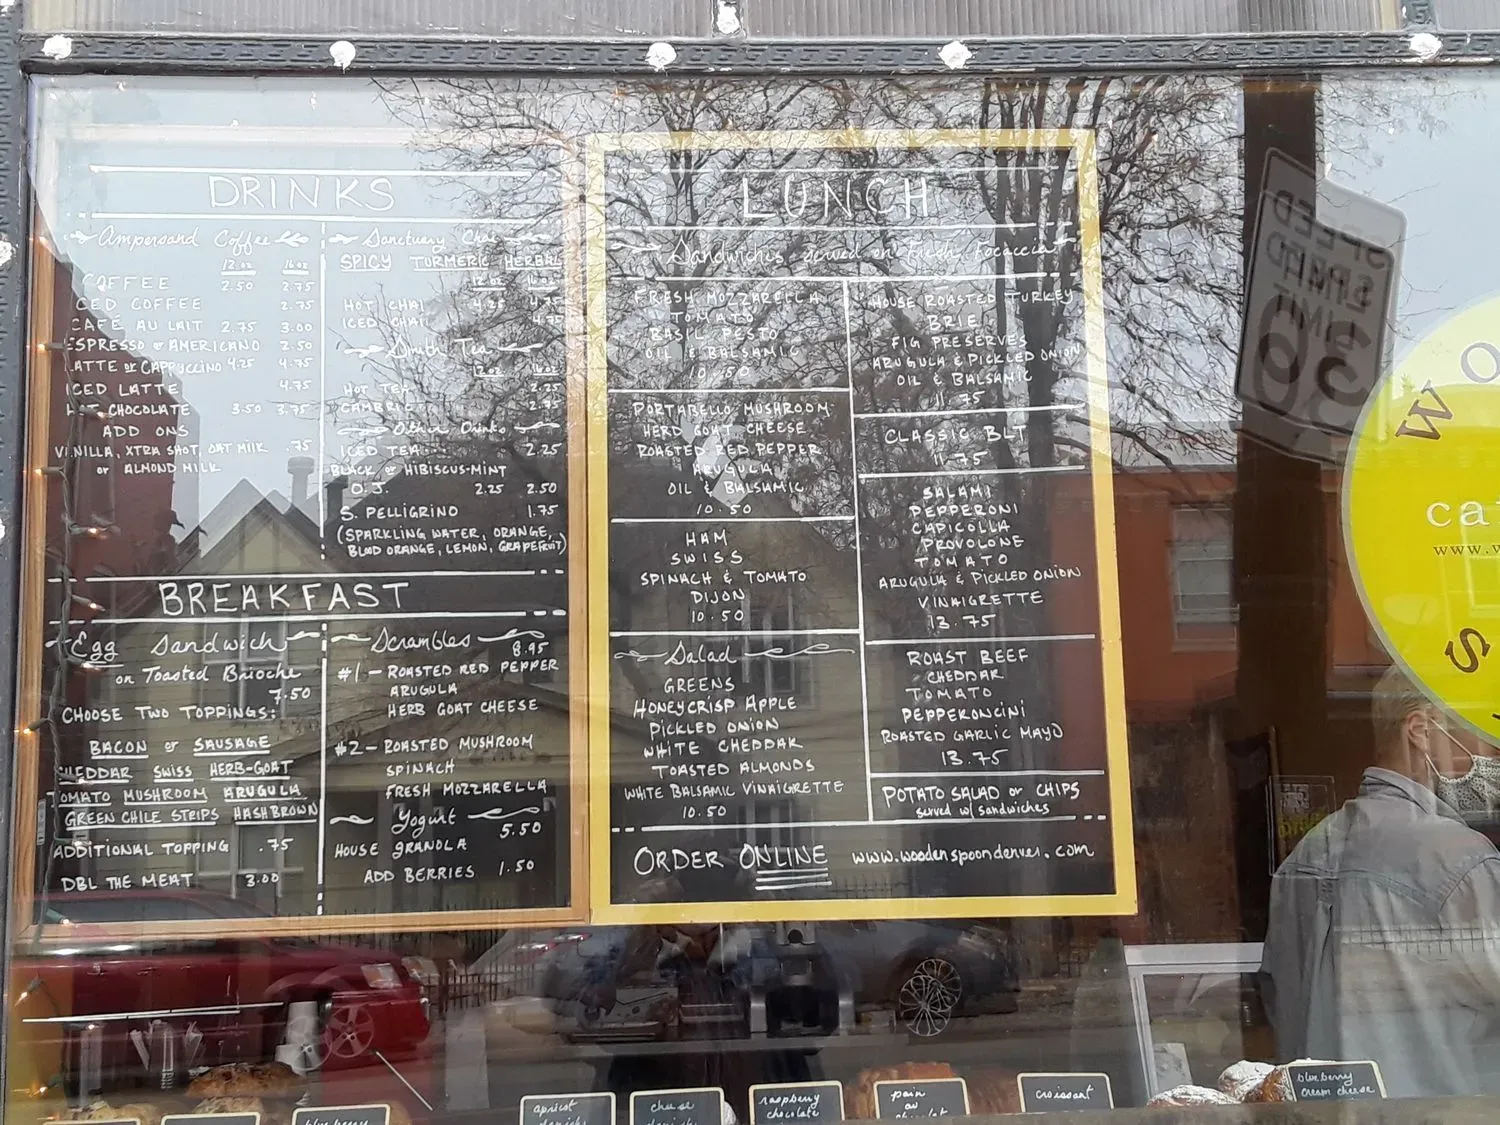 DRINKS
Ampersand Coffee
12 oz 16 oz
COFFEE 2.50 2.75
ICED COFFEE 2.75
CAFÉ AU LAIT 2.75 3.00
ESPRESSO or AMERICANO 2.50
LATTE or CAPPUCCINO 4.25 4.75
ICED LATTE 4.75
HOT CHOCOLATE 3.50 3.75
ADD ONS
VANILLA, XTRA SHOT, OAT MILK .75
or ALMOND MILK
Sanctuary Chai
SPICY TURMERIC HERBAL
12 oz 16 oz
HOT CHAI 4.25 4.75
ICED CHAI 4.75
Smith Tea
12 oz 16 oz
HOT TEA 2.25
CAMBRIC 2.75
Other Drinks
ICED TEA 2.25
BLACK or HIBISCUS-MINT
O.J. 2.25 2.50
S. PELLIGRINO 1.75
(SPARKLING WATER, ORANGE,
BLOOD ORANGE, LEMON, GRAPEFRUIT)
BREAKFAST
Egg Sandwich
on Toasted Brioche
7.50
CHOOSE TWO TOPPINGS:
BACON or SAUSAGE
CHEDDAR SWISS HERB-GOAT
TOMATO MUSHROOM ARUGULA
GREEN CHILE STRIPS HASHBROWN
ADDITIONAL TOPPING .75
DBL THE MEAT 3.00
Scrambles
8.95
#1 - ROASTED RED PEPPER
ARUGULA
HERB GOAT CHEESE
#2 - ROASTED MUSHROOM
SPINACH
FRESH MOZZARELLA
Yogurt
5.50
HOUSE GRANOLA
ADD BERRIES 1.50
LUNCH
Sandwiches served on Fresh Focaccia
FRESH MOZZARELLA
TOMATO
BASIL PESTO
OIL & BALSAMIC
10.50
PORTABELLO MUSHROOM
HERB GOAT CHEESE
ROASTED RED PEPPER
ARUGULA
OIL & BALSAMIC
10.50
HAM
SWISS
SPINACH & TOMATO
DIJON
10.50
Salad
GREENS
HONEYCRISP APPLE
PICKLED ONION
WHITE CHEDDAR
TOASTED ALMONDS
WHITE BALSAMIC VINAIGRETTE
10.50
HOUSE ROASTED TURKEY
BRIE
FIG PRESERVES
ARUGULA & PICKLED ONION
OIL & BALSAMIC
11.75
CLASSIC BLT
11.75
SALAMI
PEPPERONI
CAPICOLLA
PROVOLONE
TOMATO
ARUGULA & PICKLED ONION
VINAIGRETTE
13.75
ROAST BEEF
CHEDDAR
TOMATO
PEPPERONCINI
ROASTED GARLIC MAYO
13.75
POTATO SALAD or CHIPS
served w/ Sandwiches
ORDER ONLINE www.woodenspoondenver.com
SPEED
LIMIT
30
WO
ca
www.w
S
blueberry
apricot
danish
cheese
danish
raspberry
chocolate
pain
au
chocolat
croissant
blueberry
cream cheese